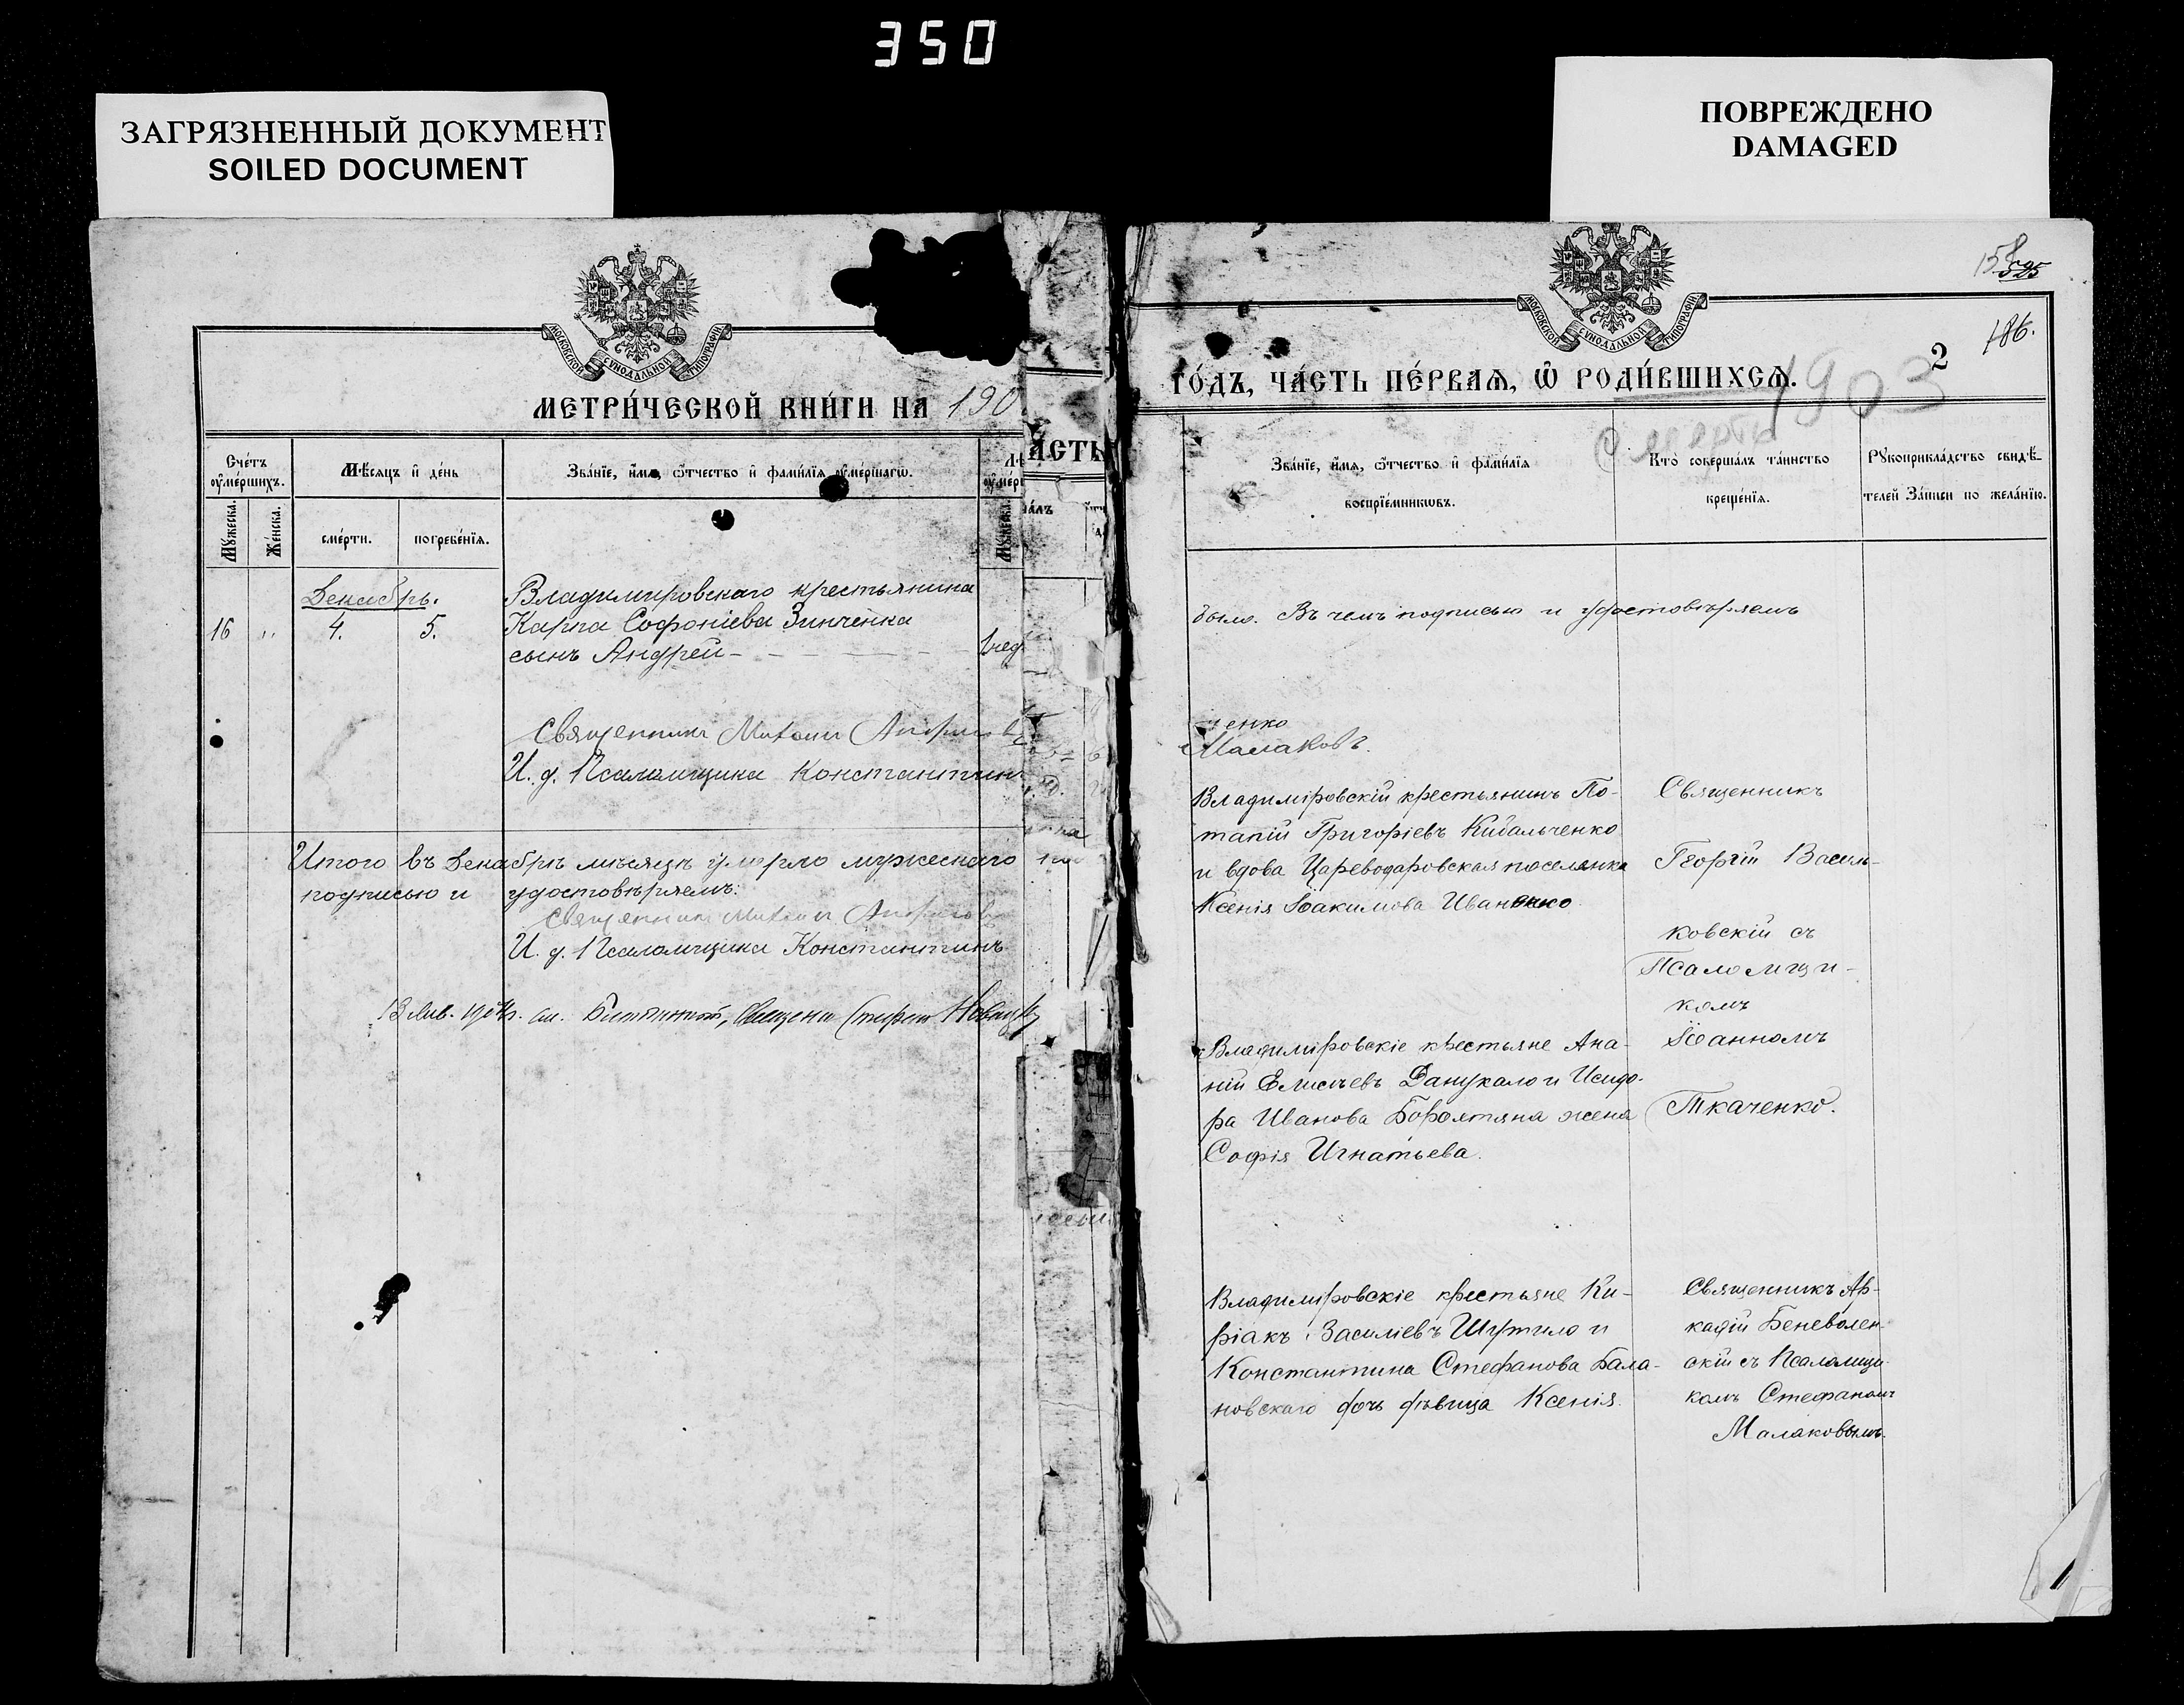 350
ЗАГРЯЗНЕННЫЙ ДОКУМЕНТ
SOILED DOCUMENT
ПОВРЕЖДЕНО
DAMAGED
МОСКОВСКОЙ СѴНОДАЛЬНОЙ ТИПОГРАФІИ
МЕТРИ́ЧЕСКОЙ КНИ́ГИ НА 190
Сче́тъ ᲂу҆ме́ршихъ.
Мѣ́сяцъ и҆ де́нь
Зва́нїе, и҆́мѧ, ѻ҆́тчество и҆ фами́лїѧ ᲂу҆ме́ршагѡ.
Мꙋ́жеска.
Же́нска.
сме́рти.
погребе́нїѧ.
Мꙋ́жеска.
Декабрь.
16 „ 4. 5.
Владимировскаго крестьянина
Карпа Софоніева Зинченка
сынъ Андрей
1 нед
Священникъ Михаилъ
И. д. Псаломщика Константинъ
Итого въ Декабрѣ мѣсяцѣ умерло мужескаго
подписью и удостовѣряемъ:
Священникъ Михаилъ
И. д. Псаломщика Константинъ
АСТЬ
МОСКОВСКОЙ СѴНОДАЛЬНОЙ ТИПОГРАФІИ
186.
2
ГО́ДЪ, ЧА́СТЬ ПЕ́РВАѦ, Ѡ҆ РОДИ́ВШИХСѦ.
1903
Зва́нїе, и҆́мѧ, ѻ҆́тчество и҆ фами́лїѧ
воспрїе́мникѡвъ.
Кто̀ соверша́лъ та́инство
креще́нїѧ.
Рꙋкоприкла́дство свидѣ́-
телей за́писи по жела́нїю.
было. Въ чемъ подписью и удостовѣряемъ
ченко
Малаковъ.
Владиміровскій крестьянинъ По-
тапій Григоріевъ Кибальченко
и вдова Цареводаровская поселянка
Ксенія Іоакимова Иваненко
Священникъ
Георгій Василь-
ковскій съ
Псаломщи-
комъ
Іоанномъ
Ткаченко.
Владиміровскіе крестьяне Ана-
ній Елисѣевъ Данукало и Исидо-
ра Иванова Боролтяна жена
Софія Игнатьева.
Владиміровскіе крестьяне Ки-
ріакъ Василіевъ Шутило и
Константина Стефанова Бала-
новскаго дочь дѣвица Ксенія.
Священникъ Ар-
кадій Беневолен-
скій съ Псаломщи-
комъ Стефаномъ
Малаковымъ.